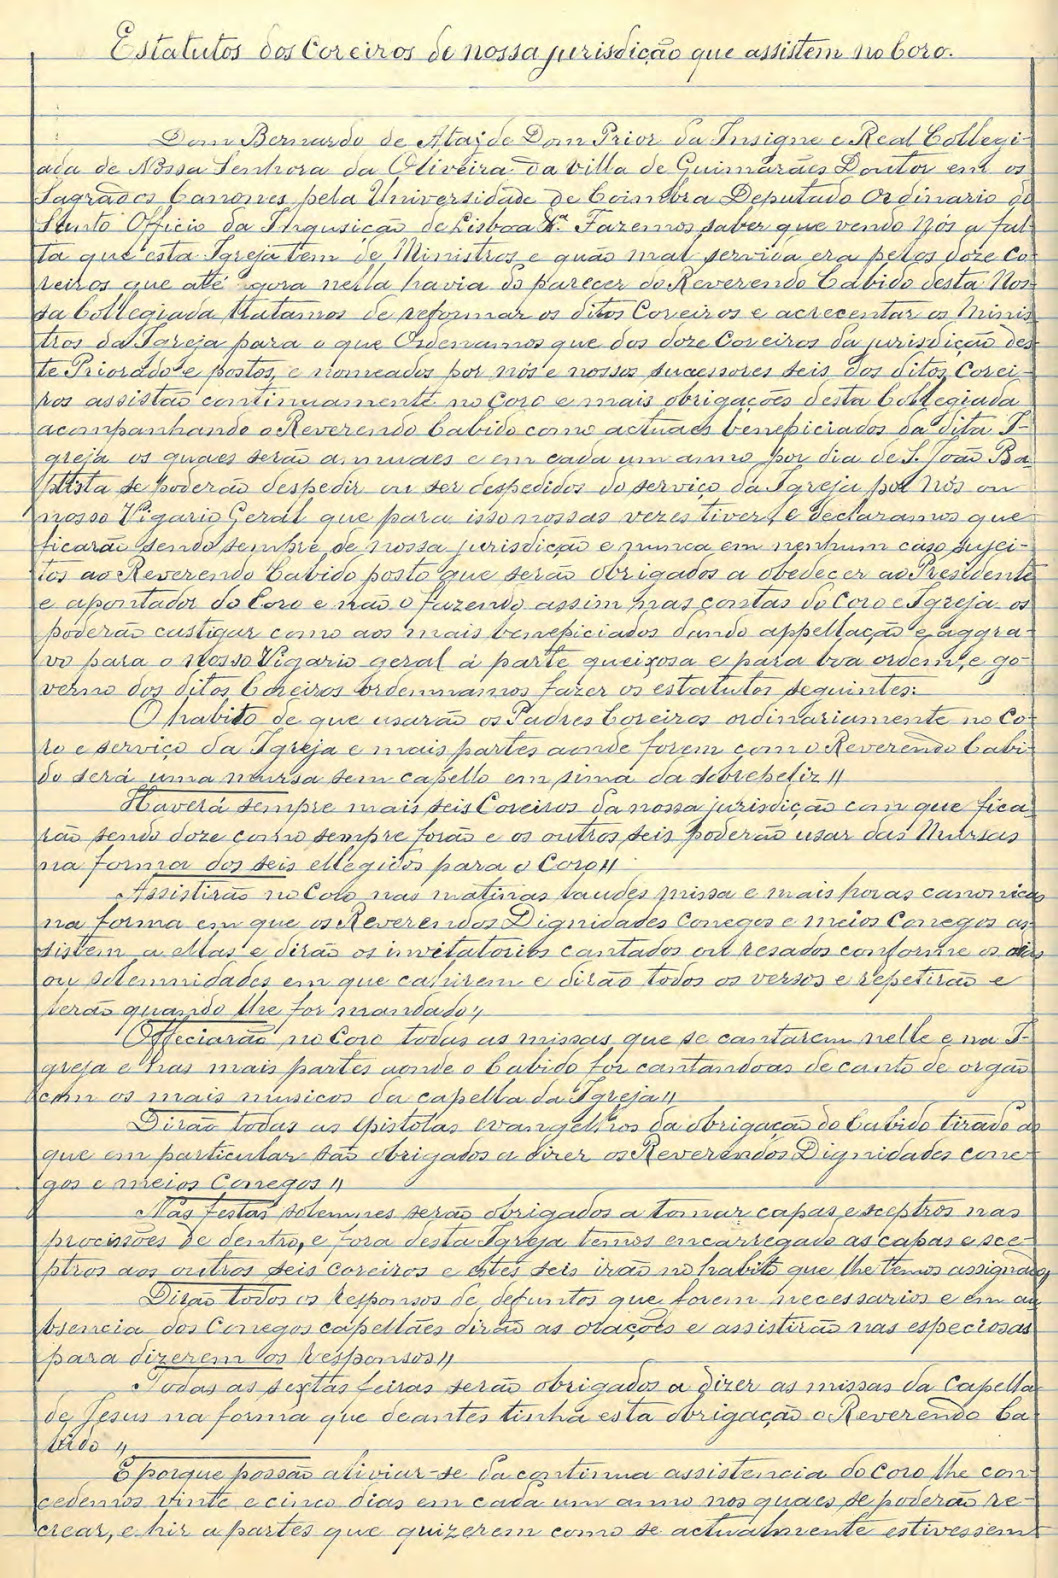 Estatutos dos Coreiros de nossa jurisdição que assistem no Coro.
Dom Bernardo de Atayde Dom Prior da Insigne e Real Collegi-
ada de Nossa Senhora da Oliveira da Villa de Guimarães Doutor em os
Sagrados Canones pela Universidade de Coimbra Deputado Ordinario do
Santo Officio da Inqusição de Lisboa &.ª Fazemos saber que vendo Nós a fal-
ta que esta Igreja tem de Ministros e quão mal servida era pelos doze Co-
reiros que até agora nella havia do parecer do Reverendo Cabido desta Nos-
sa Collegiada tratamos de reformar os ditos Coreiros e acrecentar os Minis-
tros da Igreja para o que Ordenamos que dos doze Coreiros da jurisdição des-
te Priorado e postos, e nomeados por nós e nossos sucessores seis dos ditos Corei-
ros assistão continuamente no Coro e mais obrigações desta Collegiada
acompanhando o Reverendo Cabido como actuaes beneficiados da dita I-
greja os quaes serão annuaes e em cada um anno por dia de S. João Ba-
ptista se poderão despedir ou ser despedidos do serviço da Igreja por Nós ou
nosso Vigario Geral que para isso nossas vezes tiver, e declaramos que
ficarão sendo sempre de nossa jurisdicção e nunca em nenhum caso sujei-
tos ao Reverendo Cabido posto que serão obrigados a obedecer ao Presidente
e apontador do Coro e não o fazendo assim nas contas do Coro e Igreja os
poderão castigar como aos mais beneficiados dando appellação e aggra-
vo para o nosso Vigario geral á parte queixosa e para boa ordem, e go-
verno dos ditos Coreiros ordennamos fazer os estatutos seguintes:
O habito de que usarão os Padres Coreiros ordinariamente no Co-
ro e serviço da Igreja e mais partes aonde forem com o Reverendo Cabi-
do será uma mursa sem capello em sima da sobrepeliz //
Haverá sempre mais seis Coreiros da nossa jurisdição com que fica-
rão sendo doze como sempre forão e os outros seis poderão usar das Mursas
na forma dos seis ellegidos para o Coro //
Assistirão no Coro nas matinas laudes missa e mais horas canonicas
na forma em que os Reverendos Dignidades Conegos e meios Conegos as-
sistem a ellas e dirão os invitatorios cantados ou resados conforme os dias
ou solemnidades em que cahirem e dirão todos os versos e repetirão e
lerão quando lhe for mandado //
Officiarão no Coro todas as missas que se cantarem nelle e na I-
greja e nas mais partes aonde o Cabido for cantandoas de canto de orgão
com os mais musicos da capella da Igreja //
Dirão todas as Epistolas Evangelhos da obrigação do Cabido tirado as
que em particular são obrigados a dizer os Reverendos Dignidades cone-
gos e meios Conegos //
Nas festas solemnes serão obrigados a tomar capas e sceptros nas
procissões de dentro, e fora desta Igreja temos encarregado as capas e sce-
ptros aos outros seis Coreiros e estes seis irão no habito que lhe temos assignado
Dirão todos os Responsos de defuntos que forem necessarios e em au-
sencia dos Conegos capellães dirão as orações e assistirão nas especiosas
para dizerem os Responsos //
Todas as sextas feiras serão obrigados a dizer as missas da Capella
de Jesus na forma que deantes tinha esta obrigação o Reverendo Ca-
bido //
E porque possão aliviar-se da continua assistencia do Coro lhe con-
cedemos vinte e cinco dias em cada um anno nos quaes se poderão re-
crear, e hir a partes que quizerem como se actualmente estivessem